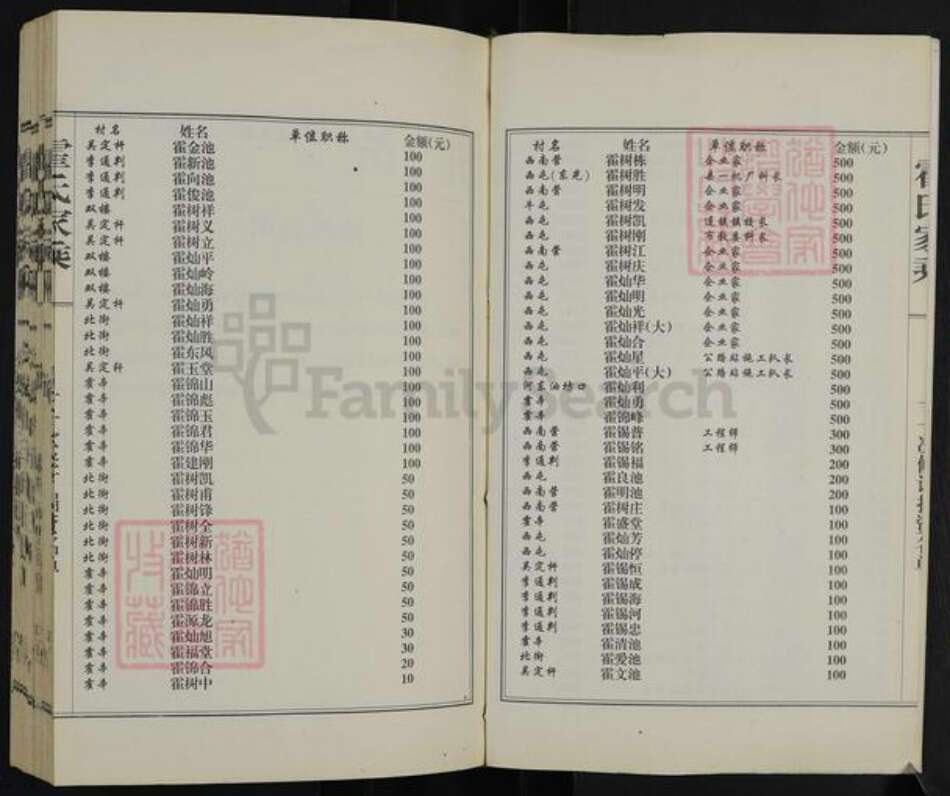 村名 姓名 单位职称 金额(元)
吴定杆 霍金池 100
李通判 霍新池 100
李通判 霍向池 100
李通判 霍俊池 100
双楼 霍树祥 100
吴定杆 霍树义 100
吴定杆 霍树立 100
双楼 霍灿平 100
双楼 霍灿岭 100
双楼 霍灿海 100
吴定杆 霍灿勇 100
北街 霍灿祥 100
北街 霍灿胜 100
北街 霍东风 100
吴定杆 霍玉堂 100
霍辛 霍锦山 100
霍辛 霍锦彪 100
霍辛 霍锦玉 100
霍辛 霍锦君 100
霍辛 霍锦华 100
霍辛 霍建刚 100
北街 霍树凯 50
北街 霍树甫 50
北街 霍树锋 50
北街 霍树全 50
北街 霍树新 50
北街 霍树林 50
霍辛 霍灿明 50
霍辛 霍锦立 50
霍辛 霍锦胜 50
霍辛 霍源龙 50
霍辛 霍灿旭 30
霍辛 霍福堂 30
霍辛 霍锦合 20
霍辛 霍树中 10
霍氏家乘
村名 姓名 单位职称 金额(元)
西南营 霍树栋 企业家 500
西屯(东光) 霍树胜 县一机厂科长 500
西南营 霍树明 企业家 500
牛屯 霍树发 企业家 500
西屯 霍树凯 镇镇长 500
西屯 霍树刚 市教委科长 500
西南营 霍树江 企业家 500
西屯 霍树庆 企业家 500
西屯 霍灿华 企业家 500
西屯 霍灿明 企业家 500
西屯 霍灿光 企业家 500
西屯 霍灿祥(大) 企业家 500
西屯 霍灿合 企业家 500
西屯 霍灿星 公路站施工队长 500
西屯 霍灿平(大) 公路站施工队长 500
河东油坊口 霍灿利 500
霍辛 霍灿勇 500
霍辛 霍锦峰 500
西南营 霍锡普 工程师 300
西南营 霍锡铭 工程师 300
李通判 霍锡福 200
西屯 霍良池 200
西南营 霍明池 200
西南营 霍树庄 100
霍辛 霍盛堂 100
西屯 霍灿芳 100
西屯 霍灿停 100
吴定杆 霍锡恒 100
李通判 霍锡成 100
李通判 霍锡海 100
李通判 霍锡河 100
李通判 霍锡忠 100
霍辛 霍清池 100
北街 霍爱池 100
吴定杆 霍文池 100
霍氏家乘
FamilySearch